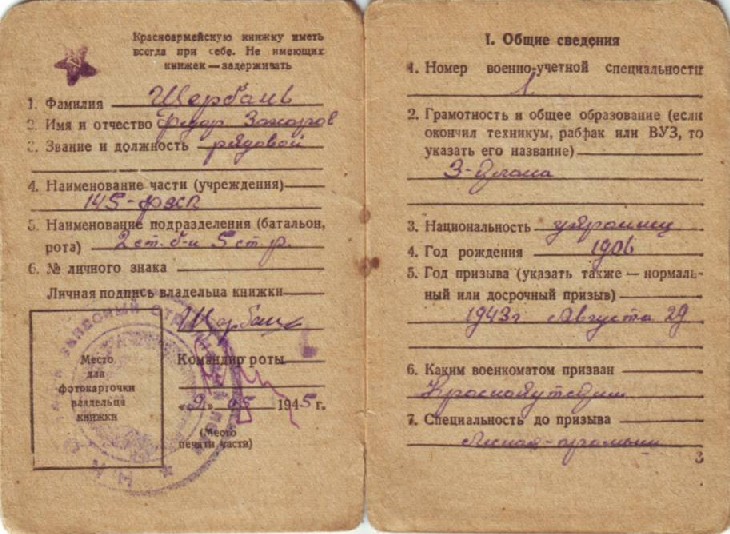 Красноармейскую книжку иметь
всегда при себе. Не имеющих
книжек — задерживать
1. Фамилия Щербань
2. Имя и отчество Федор Захаров
3. Звание и должность рядовой
4. Наименование части (учреждения)
145-
5. Наименование подразделения (батальон,
рота) 2 ст. б-н 5 ст р.
6. № личного знака
Личная подпись владельца книжки
Щербань
Место
для
фотокарточки
владельца
книжки
Командир роты
1945 г.
(Место
печати части)
I. Общие сведения
1. Номер военно-учетной специальности
1
2. Грамотность и общее образование (если
окончил техникум, рабфак или ВУЗ, то
указать его название)
3-
3. Национальность украинец
4. Год рождения 1906
5. Год призыва (указать также — нормаль-
ный или досрочный призыв)
1943 г Августа 29
6. Каким военкоматом призван
7. Специальность до призыва
3